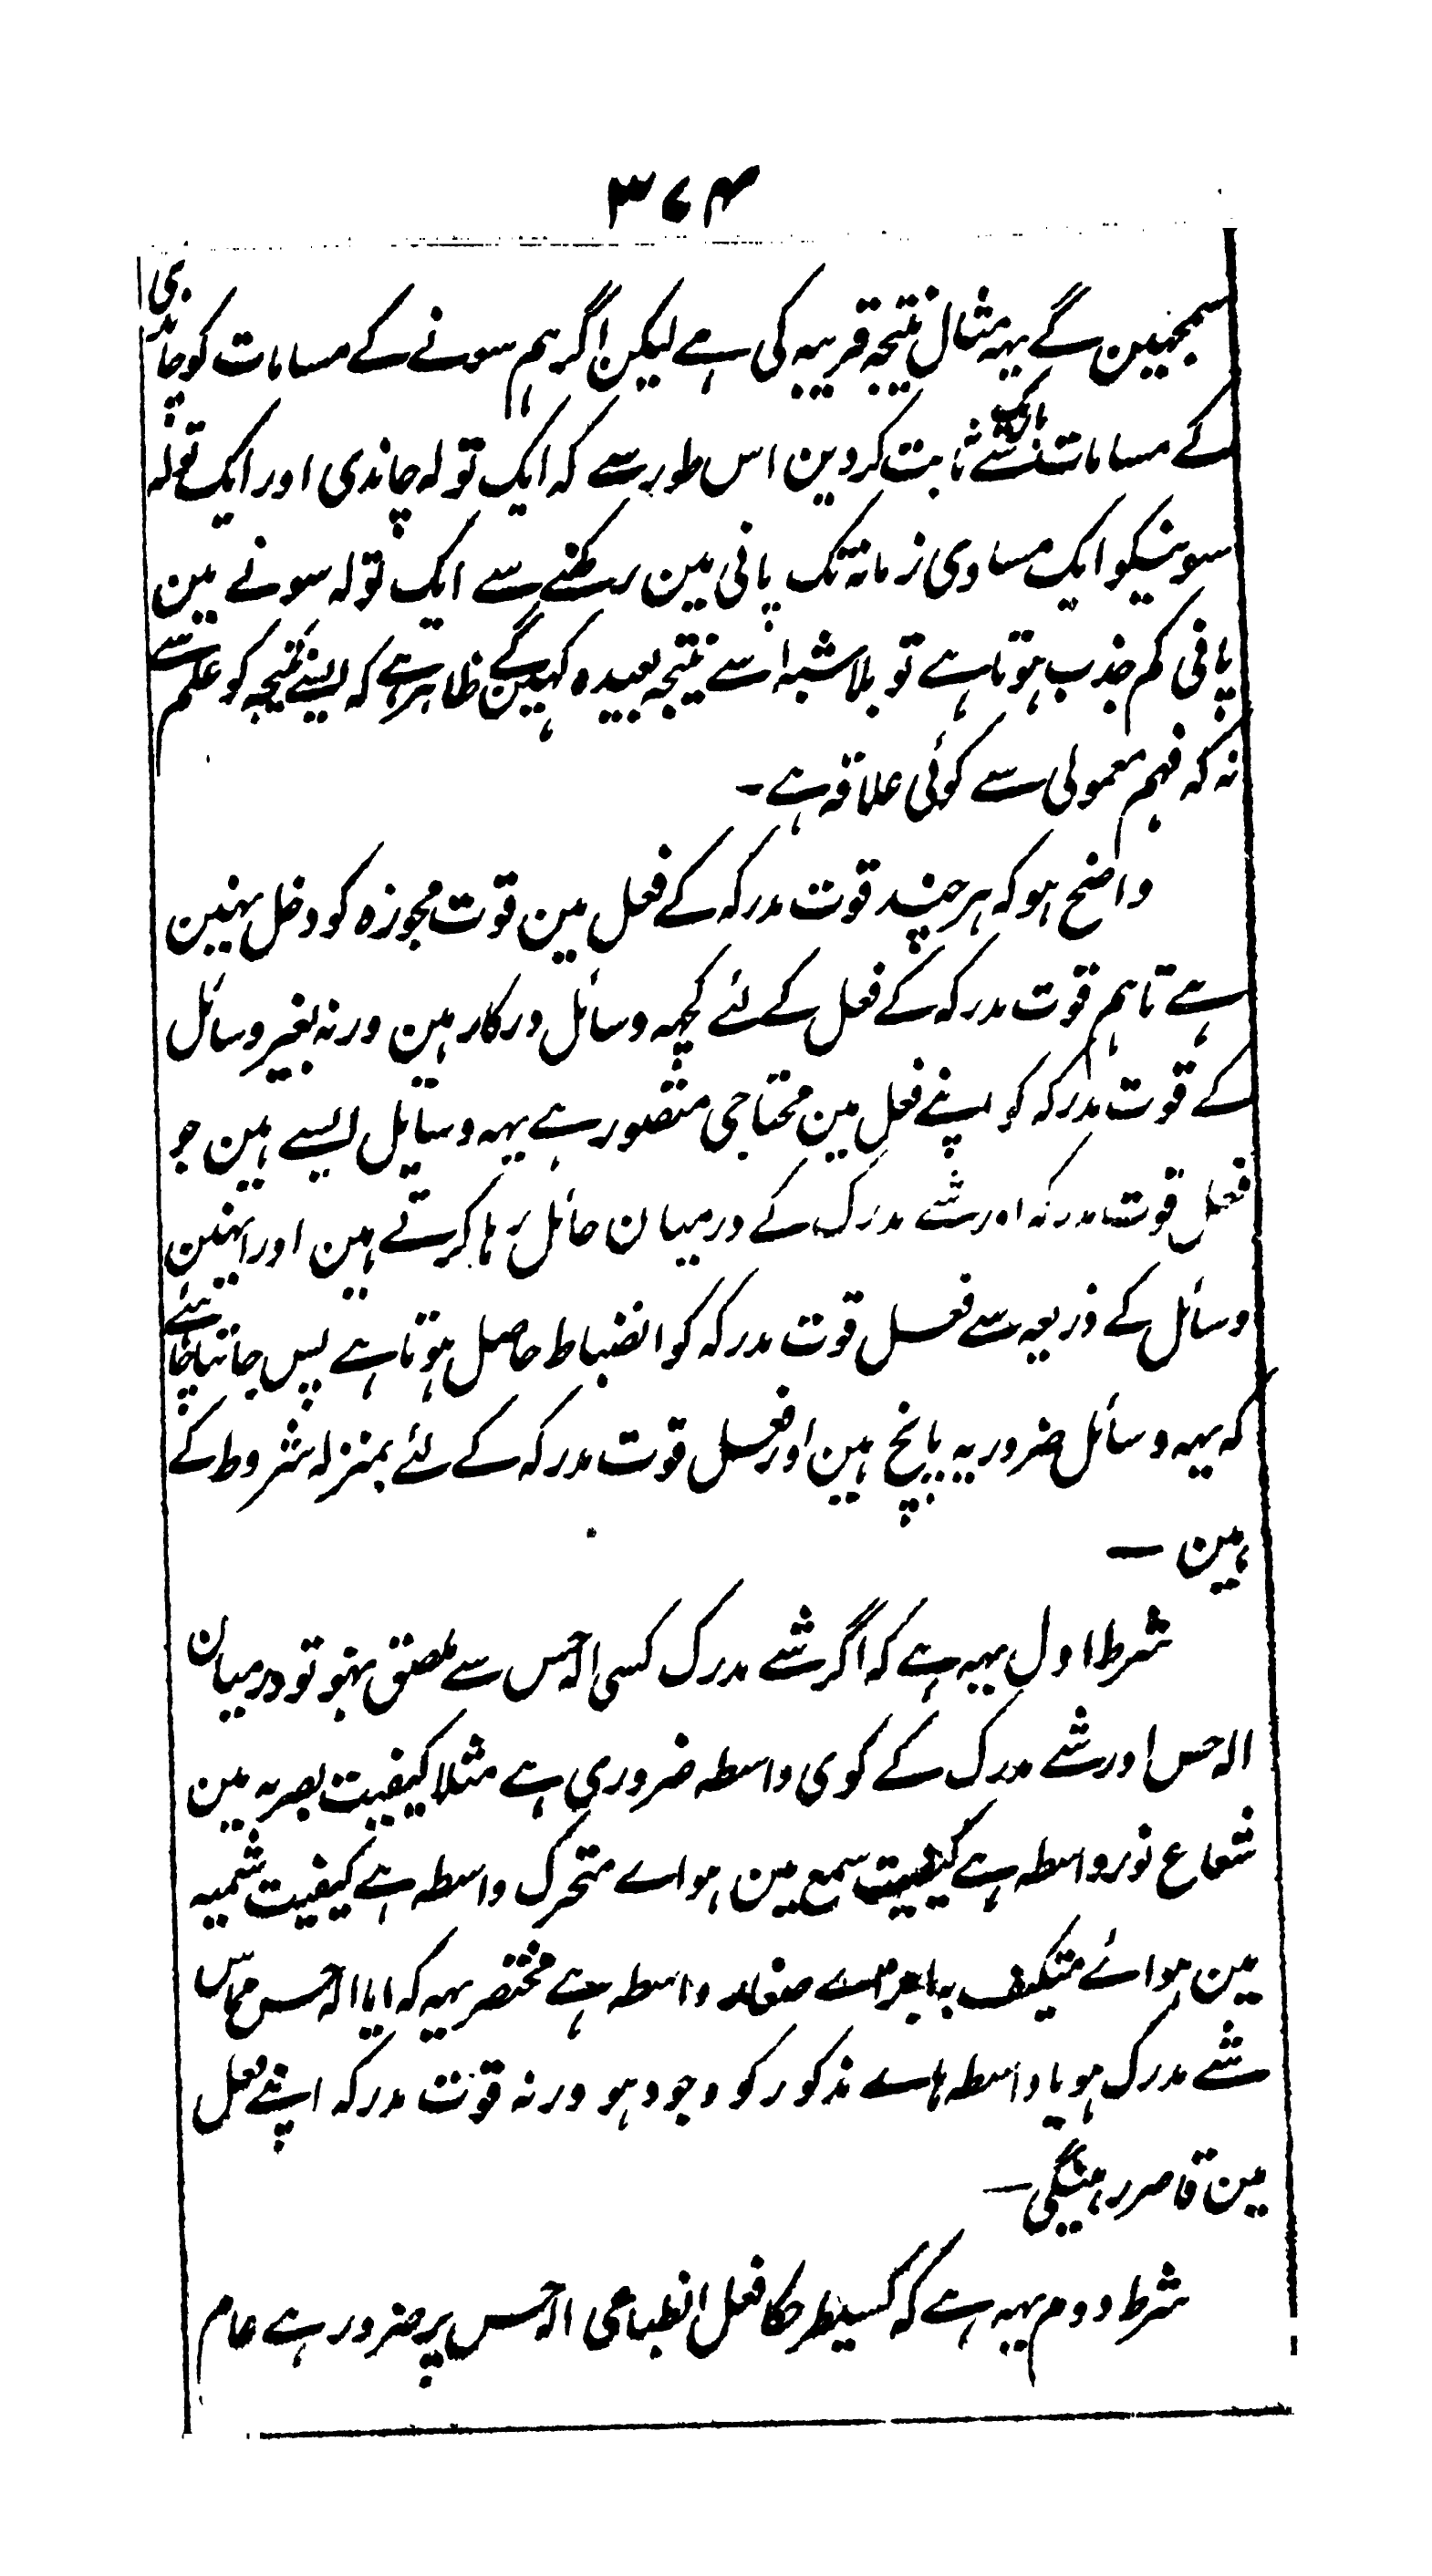 ۳۷۴
سمجہین گے یہہ مثال نتیجہ قریبہ کی ہے لیکن اگر ہم سونے کے مسامات کو چاندی
کے مسامات سے تنگ ثابت کردین اس طور سے کہ ایک تولہ چاندی اور ایک تولہ
سونیکو ایک مساوی زمانہ تک پانی مین رکھنے سے ایک تولہ سونے مین
پانی کم جذب ہوتا ہے تو بلا شبہ اسے نتیجہ بعیدہ کہین گے ظاہر ہے کہ ایسے نتیجہ کو علم سے
نہ کہ فہم معمولی سے کوئی علاقہ ہے ۔
واضح ہو کہ ہر چند قوت مدرکہ کے فعل مین قوت مجوزہ کو دخل نہین
ہے تا ہم قوت مدرکہ کے فعل کے لئے کچہہ وسائل درکار ہین ورنہ بغیر وسائل
کے قوت مدرکہ کو اپنے فعل مین محتاجی متصور ہے یہہ وسایل ایسے ہین جو
فعل قوت مدرکہ اور شے مدرک کے درمیان حائل رہا کرتے ہین اور انہین
وسائل کے ذریعہ سے فعل قوت مدرکہ کو انضباط حاصل ہوتا ہے پس جاننا چاہئے
کہ یہہ وسائل ضروریہ پانچ ہین اور فعل قوت مدرکہ کے لئے بمنزلہ شروط کے
ہین ۔
شرط اول یہہ ہے کہ اگر شے مدرک کسی الہ حس سے ملصق نہو تو درمیان
الہ حس اور شے مدرک کے کوی واسطہ ضروری ہے مثلا کیفیت بصریہ مین
شعاع نور واسطہ ہے کیفیت سمع مین ہواے متحرک واسطہ ہے کیفیت شمیہ
مین ہوائے متکیف بہ اجزاے صغار واسطہ ہے مختصر یہہ کہ ایا الہ حس مماس
شے مدرک ہو یا واسطہ ہاے مذکور کو وجود ہو ورنہ قوت مدرکہ اپنے فعل
مین قاصر رہیگی ۔
شرط دوم یہہ ہے کہ کسیطرحکا فعل انطباعی الہ حس پر ضرور ہے عام